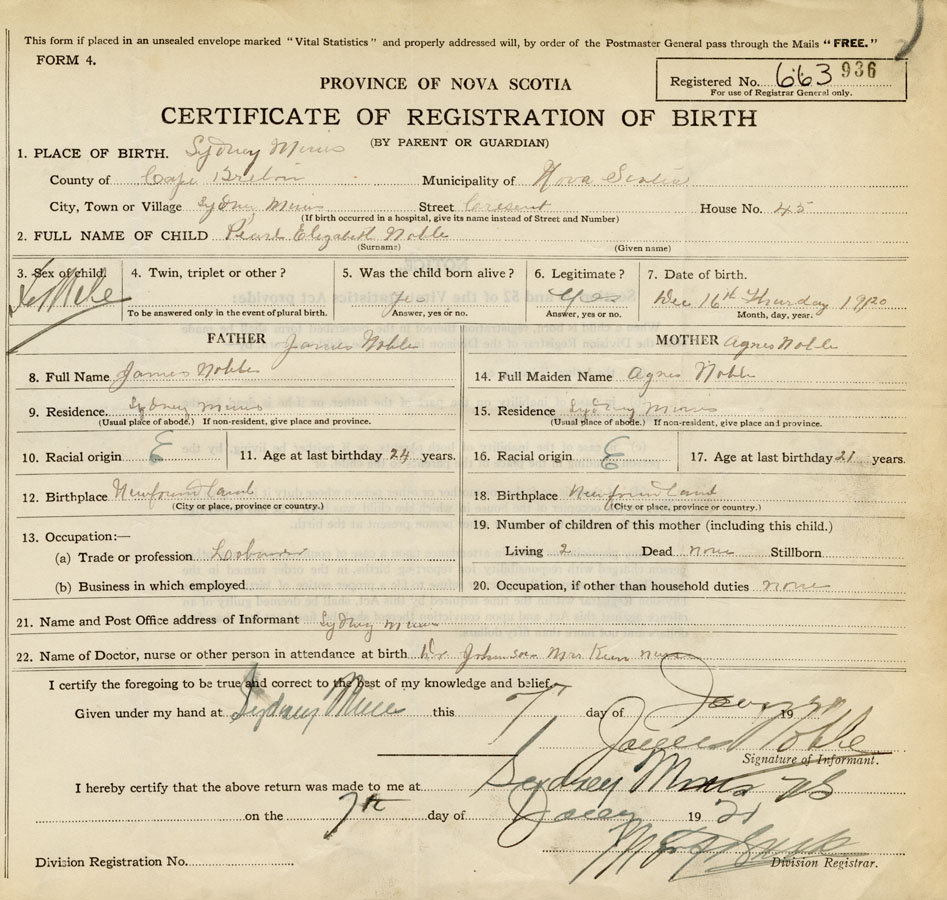 This form if placed in an unsealed envelope marked "Vital Statistics" and properly addressed will, by order of the Postmaster General pass through the Mails "FREE."
FORM 4.
Registered No. 663 936
For use of Registrar General only.
PROVINCE OF NOVA SCOTIA
CERTIFICATE OF REGISTRATION OF BIRTH
(BY PARENT OR GUARDIAN)
1. PLACE OF BIRTH. Sydney Mines
County of Cape Breton Municipality of Nova Scotia
City, Town or Village Sydney Mines Street Cresent House No. 45
(If birth occurred in a hospital, give its name instead of Street and Number)
2. FULL NAME OF CHILD Pearl Elizabeth Noble
(Surname) (Given name)
3. Sex of child. 4. Twin, triplet or other? 5. Was the child born alive? 6. Legitimate? 7. Date of birth.
yes yes Dec 16th Thursday 1920
To be answered only in the event of plural birth. Answer, yes or no. Answer, yes or no. Month, day, year.
FATHER James Noble MOTHER Agnes Noble
8. Full Name James Noble 14. Full Maiden Name Agnes Noble
9. Residence. Sydney Mines 15. Residence Sydney Mines
(Usual place of abode.) If non-resident, give place and province. (Usual place of abode.) If non-resident, give place and province.
10. Racial origin E 11. Age at last birthday 24 years. 16. Racial origin E 17. Age at last birthday 21 years.
12. Birthplace Newfoundland 18. Birthplace Newfoundland
(City or place, province or country.) (City or place, province or country.)
13. Occupation:— 19. Number of children of this mother (including this child.)
(a) Trade or profession Labourer Living 2 Dead none Stillborn
(b) Business in which employed 20. Occupation, if other than household duties none
21. Name and Post Office address of Informant Sydney Mines
22. Name of Doctor, nurse or other person in attendance at birth Dr Johnson Mrs nurse
I certify the foregoing to be true and correct to the best of my knowledge and belief.
Given under my hand at Sydney Mines this 7 day of 19
James Noble
Signature of Informant.
I hereby certify that the above return was made to me at Sydney Mines
on the 7th day of 19 21
Division Registration No. Division Registrar.